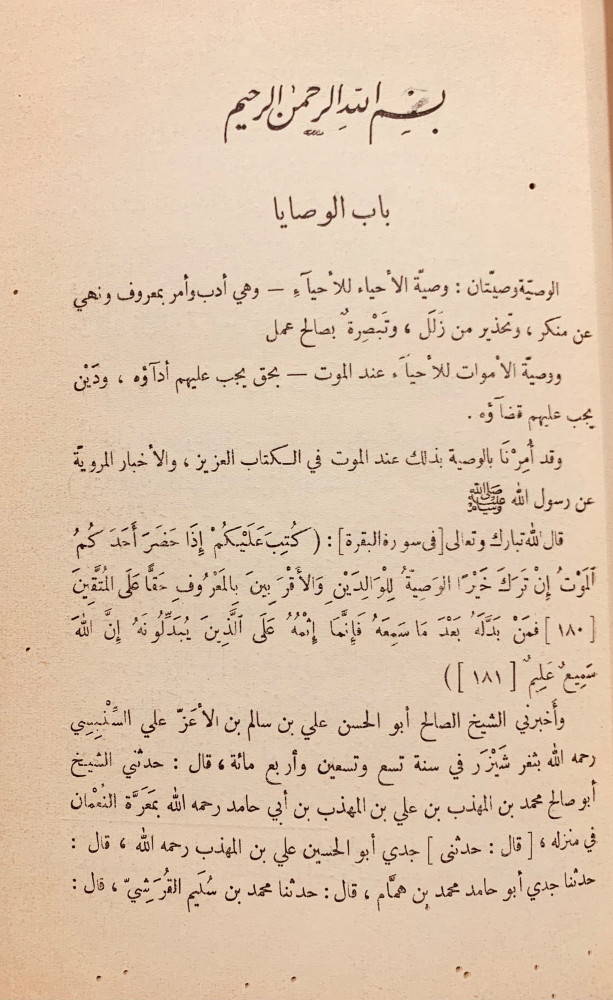 بسم الله الرحمن الرحيم
باب الوصايا
الوصيّة وصيّتان : وصيّة الأحياء للأحيآءِ — وهي أدب وأمر بمعروف ونهي
عن منكر ، وتحذير من زَلَل ، وتَبْصِرةٌ بصالح عمل
ووصيّة الأموات للأحيآء عند الموت — بحق يجب عليهم أدآؤه ، ودَيْن
يجب عليهم قضآؤه .
وقد أُمِرْنَا بالوصية بذلك عند الموت في الكتاب العزيز ، والأخبار المرويّة
عن رسول الله ﷺ
قال الله تبارك وتعالى [في سورة البقرة] : ( كُتِبَ عَلَيْكُمْ إِذَا حَضَرَ أَحَدَكُمُ
الْمَوْتُ إِنْ تَرَكَ خَيْرًا الوَصِيةُ لِلْوَالِدَيْنِ وَالأَقْرَبِينَ بِالْمَعْرُوفِ حَقًّا عَلَى الْمُتَّقِينَ
[ ١٨٠ ] فَمَنْ بَدَّلَهُ بَعْدَ مَا سَمِعَهُ فَإِنَّمَا إِثْمُهُ عَلَى الَّذِينَ يُبَدِّلُونَهُ إِنَّ اللهَ
سَمِيعٌ عَلِيمٌ [ ١٨١ ] )
وأَخبرني الشيخ الصالح أبو الحسن علي بن سالم بن الأعَزّ علي السِّنْبِسِي
رحمه الله بثغر شَيْزَر في سنة تسع وتسعين وأربع مائة ، قال : حدثني الشيخ
أبو صالح محمد بن المهذب بن علي بن المهذب بن أبي حامد رحمه الله بمَعَرَّة النُّعْمان
في منزله ، [ قال : حدثنى ] جدي أبو الحسين علي بن المهذب رحمه الله ، قال :
حدثنا جدي أبو حامد محمد بن همَّام ، قال : حدثنا محمد بن سُلَيم القُرَشِيّ ، قال :